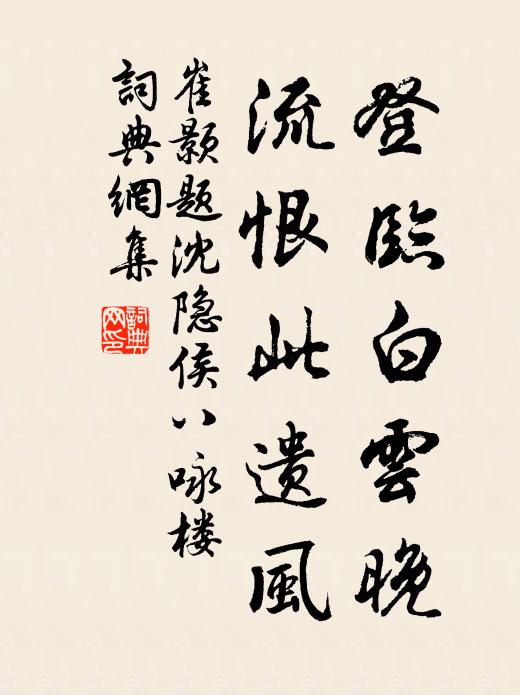 登臨白雲晚
流恨此遗風
崔颢题沈隐侯八咏楼
詞典網集
詞典网印